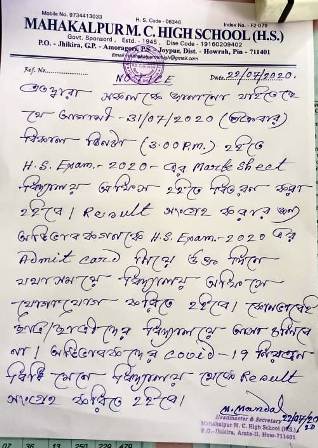 Mobile No. 9734413033
H. S. Code - 06340
Index No. - F2-079
MAHAKALPUR M. C. HIGH SCHOOL (H.S.)
Govt. Sponsord, Estd. - 1945, Dise Code - 19160209402
P.O. - Jhikira, G.P. - Amoragori, P.S. - Joypur, Dist. - Howrah, Pin - 711401
Ref. No.
NOTICE
Date. 22/07/2020.
এতদ্বারা সকলকে জানানো যাইতেছে
যে আগামী - 31/07/2020 (শুক্রবার)
বিকাল তিনটা (3:00 P.M.) হইতে
H.S. Exam. - 2020 - এর Mark Sheet
বিদ্যালয় অফিস হইতে বিতরণ করা
হইবে। Result সংগ্রহ করার জন্য
অভিভাবকগণকে H.S. Exam. - 2020 এর
Admit card নিয়ে উক্ত দিনে
যথাসময়ে বিদ্যালয় অফিসে
যোগাযোগ করিতে হইবে। কোনভাবেই
ছাত্র/ছাত্রীদের বিদ্যালয়ে আসা চলিবে
না। অভিভাবকদের COVID-19 নিয়ন্ত্রণ
বিধি মেনে বিদ্যালয় থেকে Result
সংগ্রহ করিতে হইবে।
M. Mandal 22/07/2020
Headmaster & Secretary
Mahakalpur M. C. High School (H.S.)
P.O.-Jhikira, Amta-II, How-711401